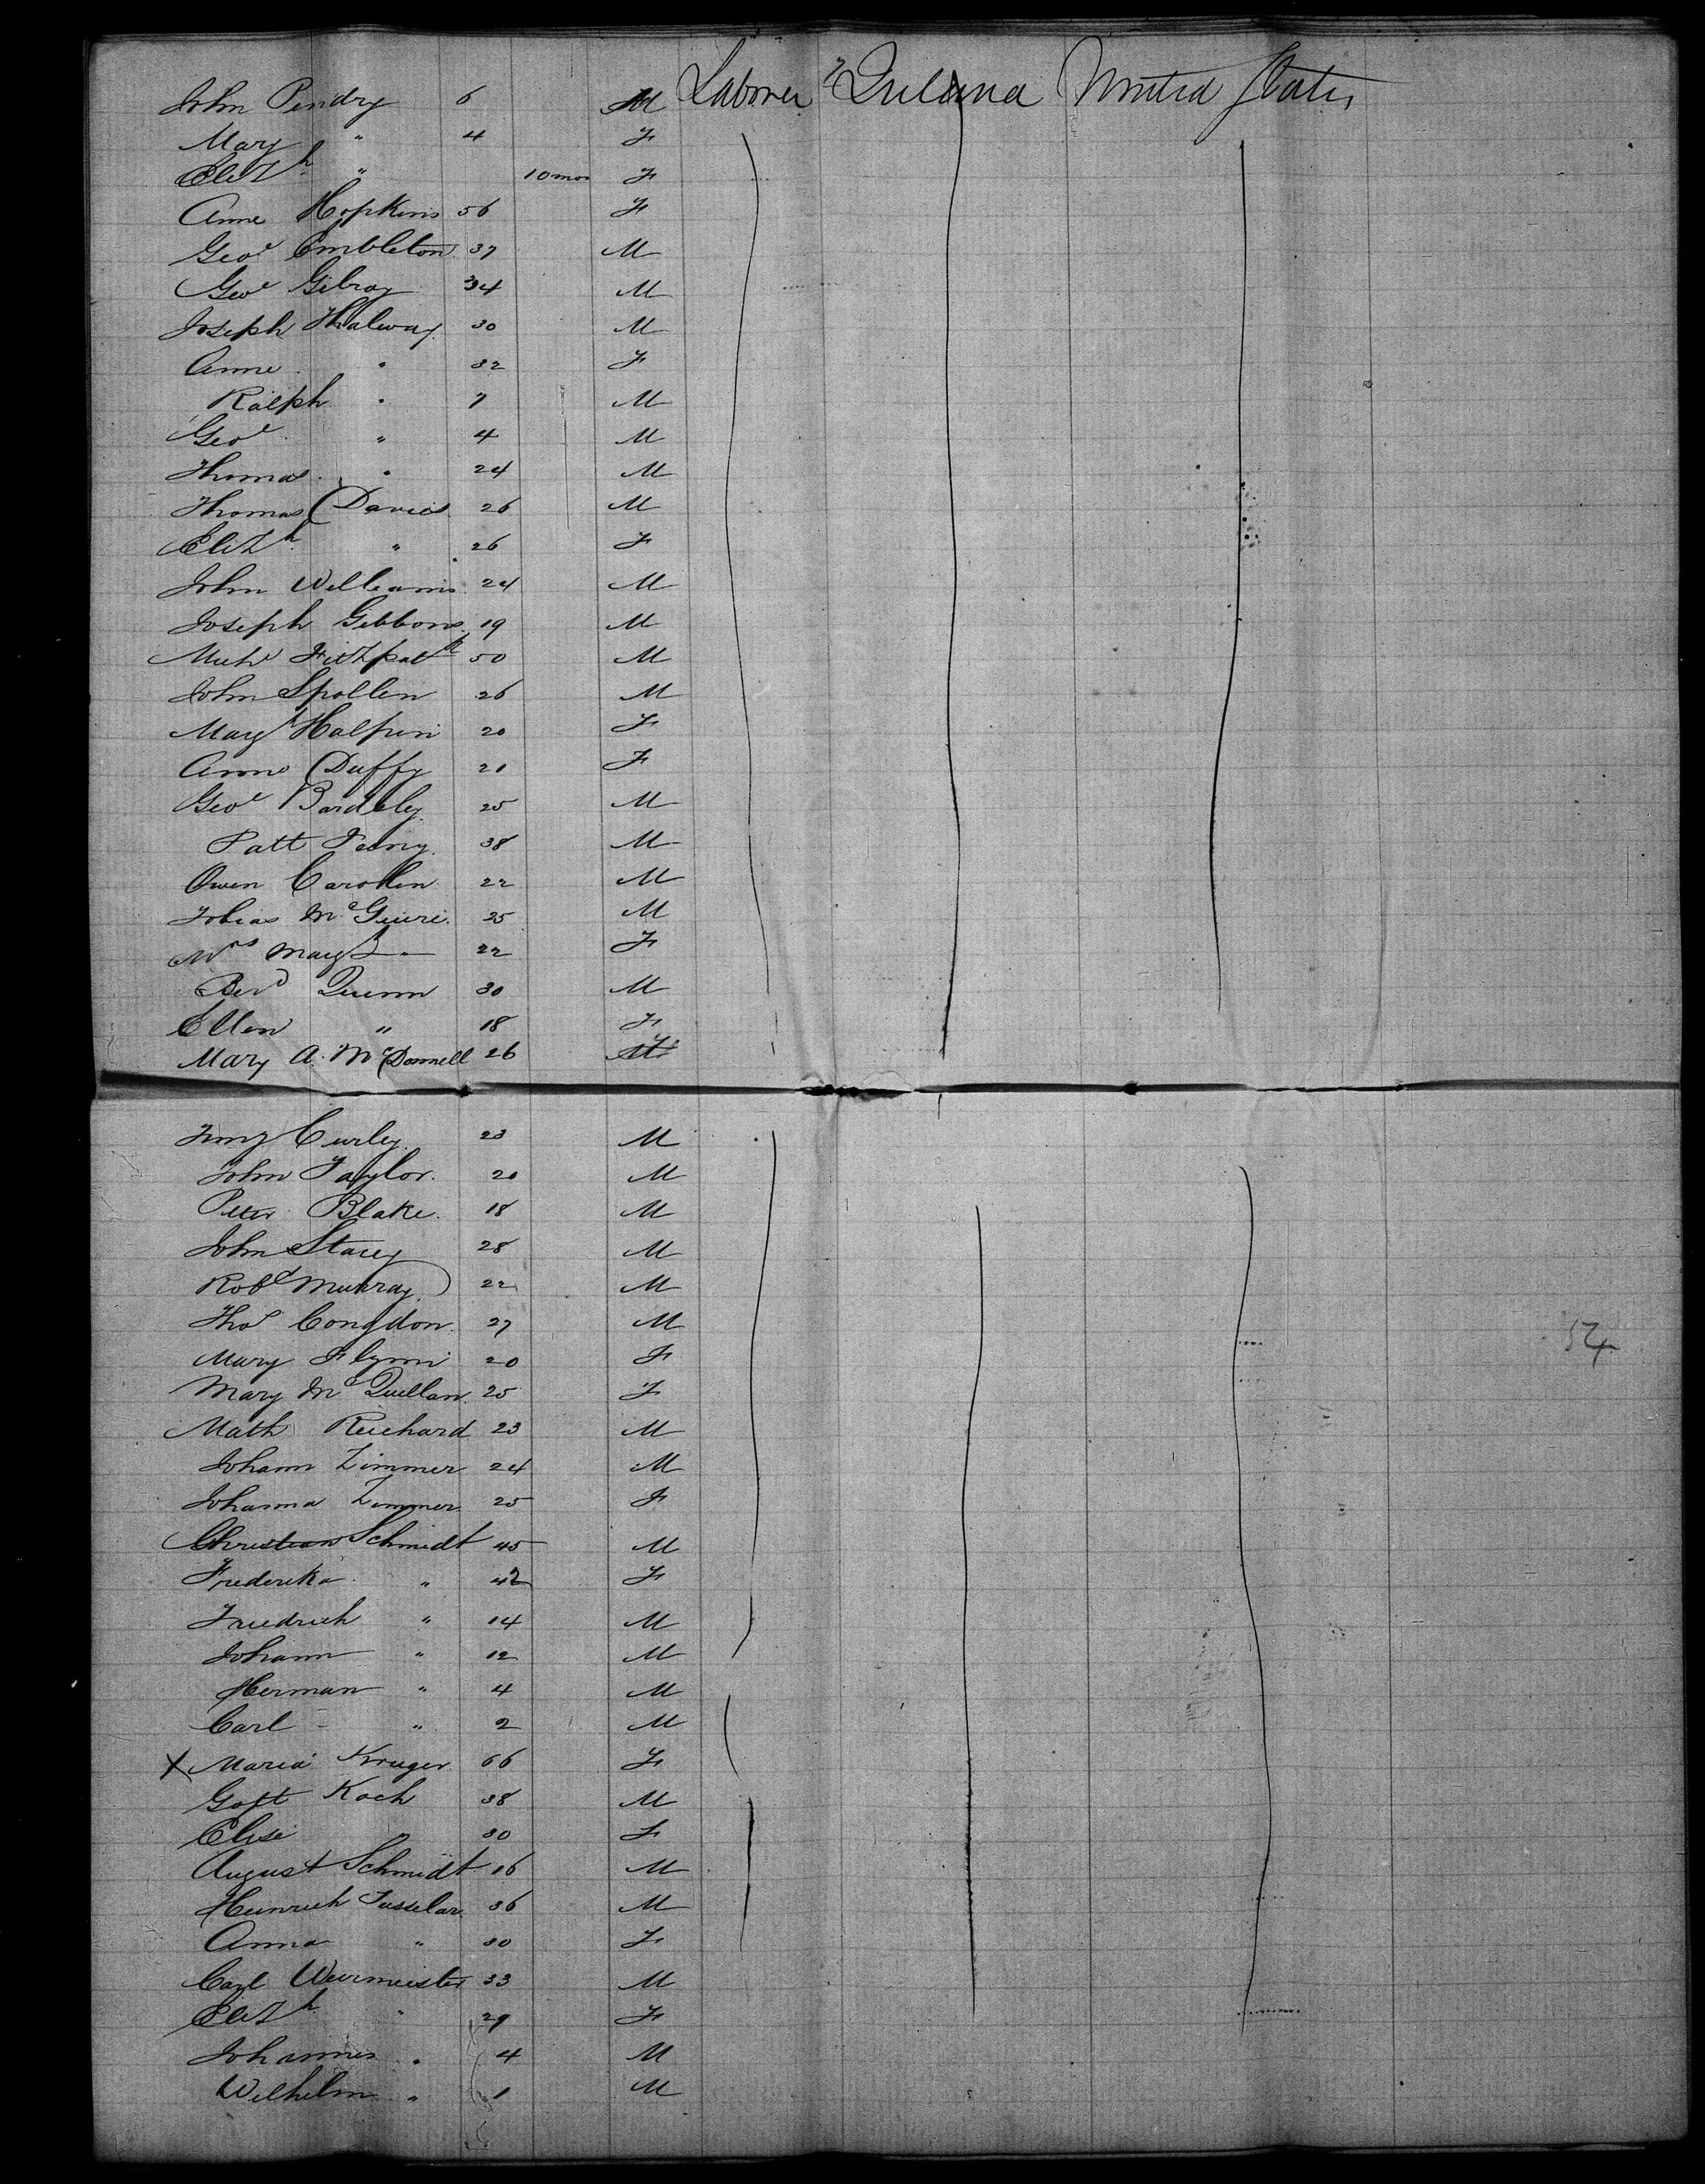 John Pendry 6 M Laborer Ireland United States
Mary " 4 F
Elizh " 10 mos F
Anne Hopkins 56 F
Geoe Embleton 37 M
Geoe Gilroy 34 M
Joseph Thalway 30 M
Anne " 32 F
Ralph " 7 M
Geoe " 4 M
Thomas " 24 M
Thomas Davies 26 M
Elizh " 26 F
John Williams 24 M
Joseph Gibbons 19 M
Michl Fitzpatk 50 M
John Spollen 26 M
Mary Halpin 20 F
Anne Duffy 21 F
Geoe Bardsley 25 M
Patt 38 M
Owen Carollin 22 M
Tobias McGuire 25 M
Mrs 22 F
Berd Quinn 30 M
Ellen " 18 F
Mary A. McDonnell 26 F
Curley 23 M
John Taylor 20 M
Peter Blake 18 M
John Stacey 28 M
Robt Murray 22 M
Thos Congdon 27 M
Mary Flynn 20 F
Mary McQuillan 25 F
Math Reichard 23 M
Johann Zimmer 24 M
Johanna Zimmer 25 F
Christian Schmidt 45 M
Frederika " 42 F
Friedrich " 14 M
Johann " 12 M
Herman " 4 M
Carl " 2 M
X Maria Kruger 66 F
Goft Koch 38 M
Elise " 30 F
August Schmidt 16 M
Heinrich Tusselar 36 M
Anna " 30 F
Carl Weirmeister 33 M
Elizh " 29 F
Johannes " 4 M
Wilhelm " 1 M
54